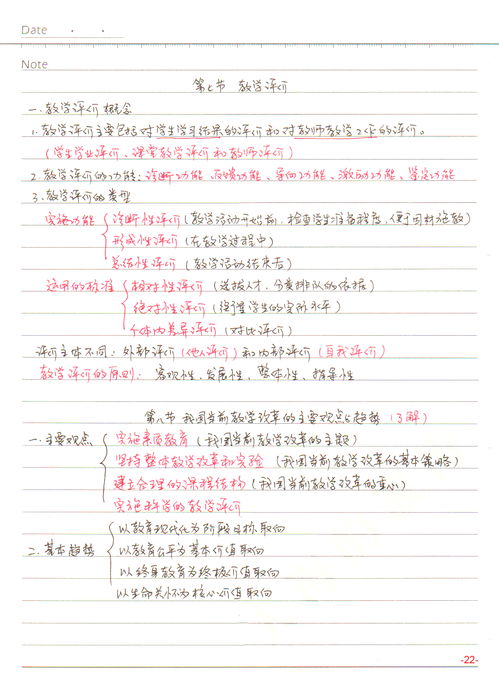 Date · ·
Note
第七节 教学评价
一.教学评价概念
1.教学评价主要包括对学生学习结果的评价和对教师教学工作的评价。
(学生学业评价、课堂教学评价和教师评价)
2.教学评价的功能:诊断功能、反馈功能、导向功能、激励功能、鉴定功能
3.教学评价的类型
实施功能 诊断性评价(教学活动开始前,检查学生准备程度,便于因材施教)
形成性评价(在教学过程中)
总结性评价(教学活动结束后)
运用的标准 相对性评价(选拔人才,分类排队的依据)
绝对性评价(衡量学生的实际水平)
个体内差异评价(对比评价)
评价主体不同:外部评价(他人评价)和内部评价(自我评价)
教学评价的原则:客观性、发展性、整体性、指导性
第八节 我国当前教学改革的主要观点与趋势(了解)
一.主要观点 实施素质教育(我国当前教学改革的主题)
坚持整体教学改革和实验(我国当前教学改革的基本策略)
建立合理的课程结构(我国当前教学改革的重心)
实施科学的教学评价
以教育现代化为阶段目标取向
二.基本趋势 以教育公平为基本价值取向
以终身教育为终极价值取向
以生命关怀为核心价值取向
-22-